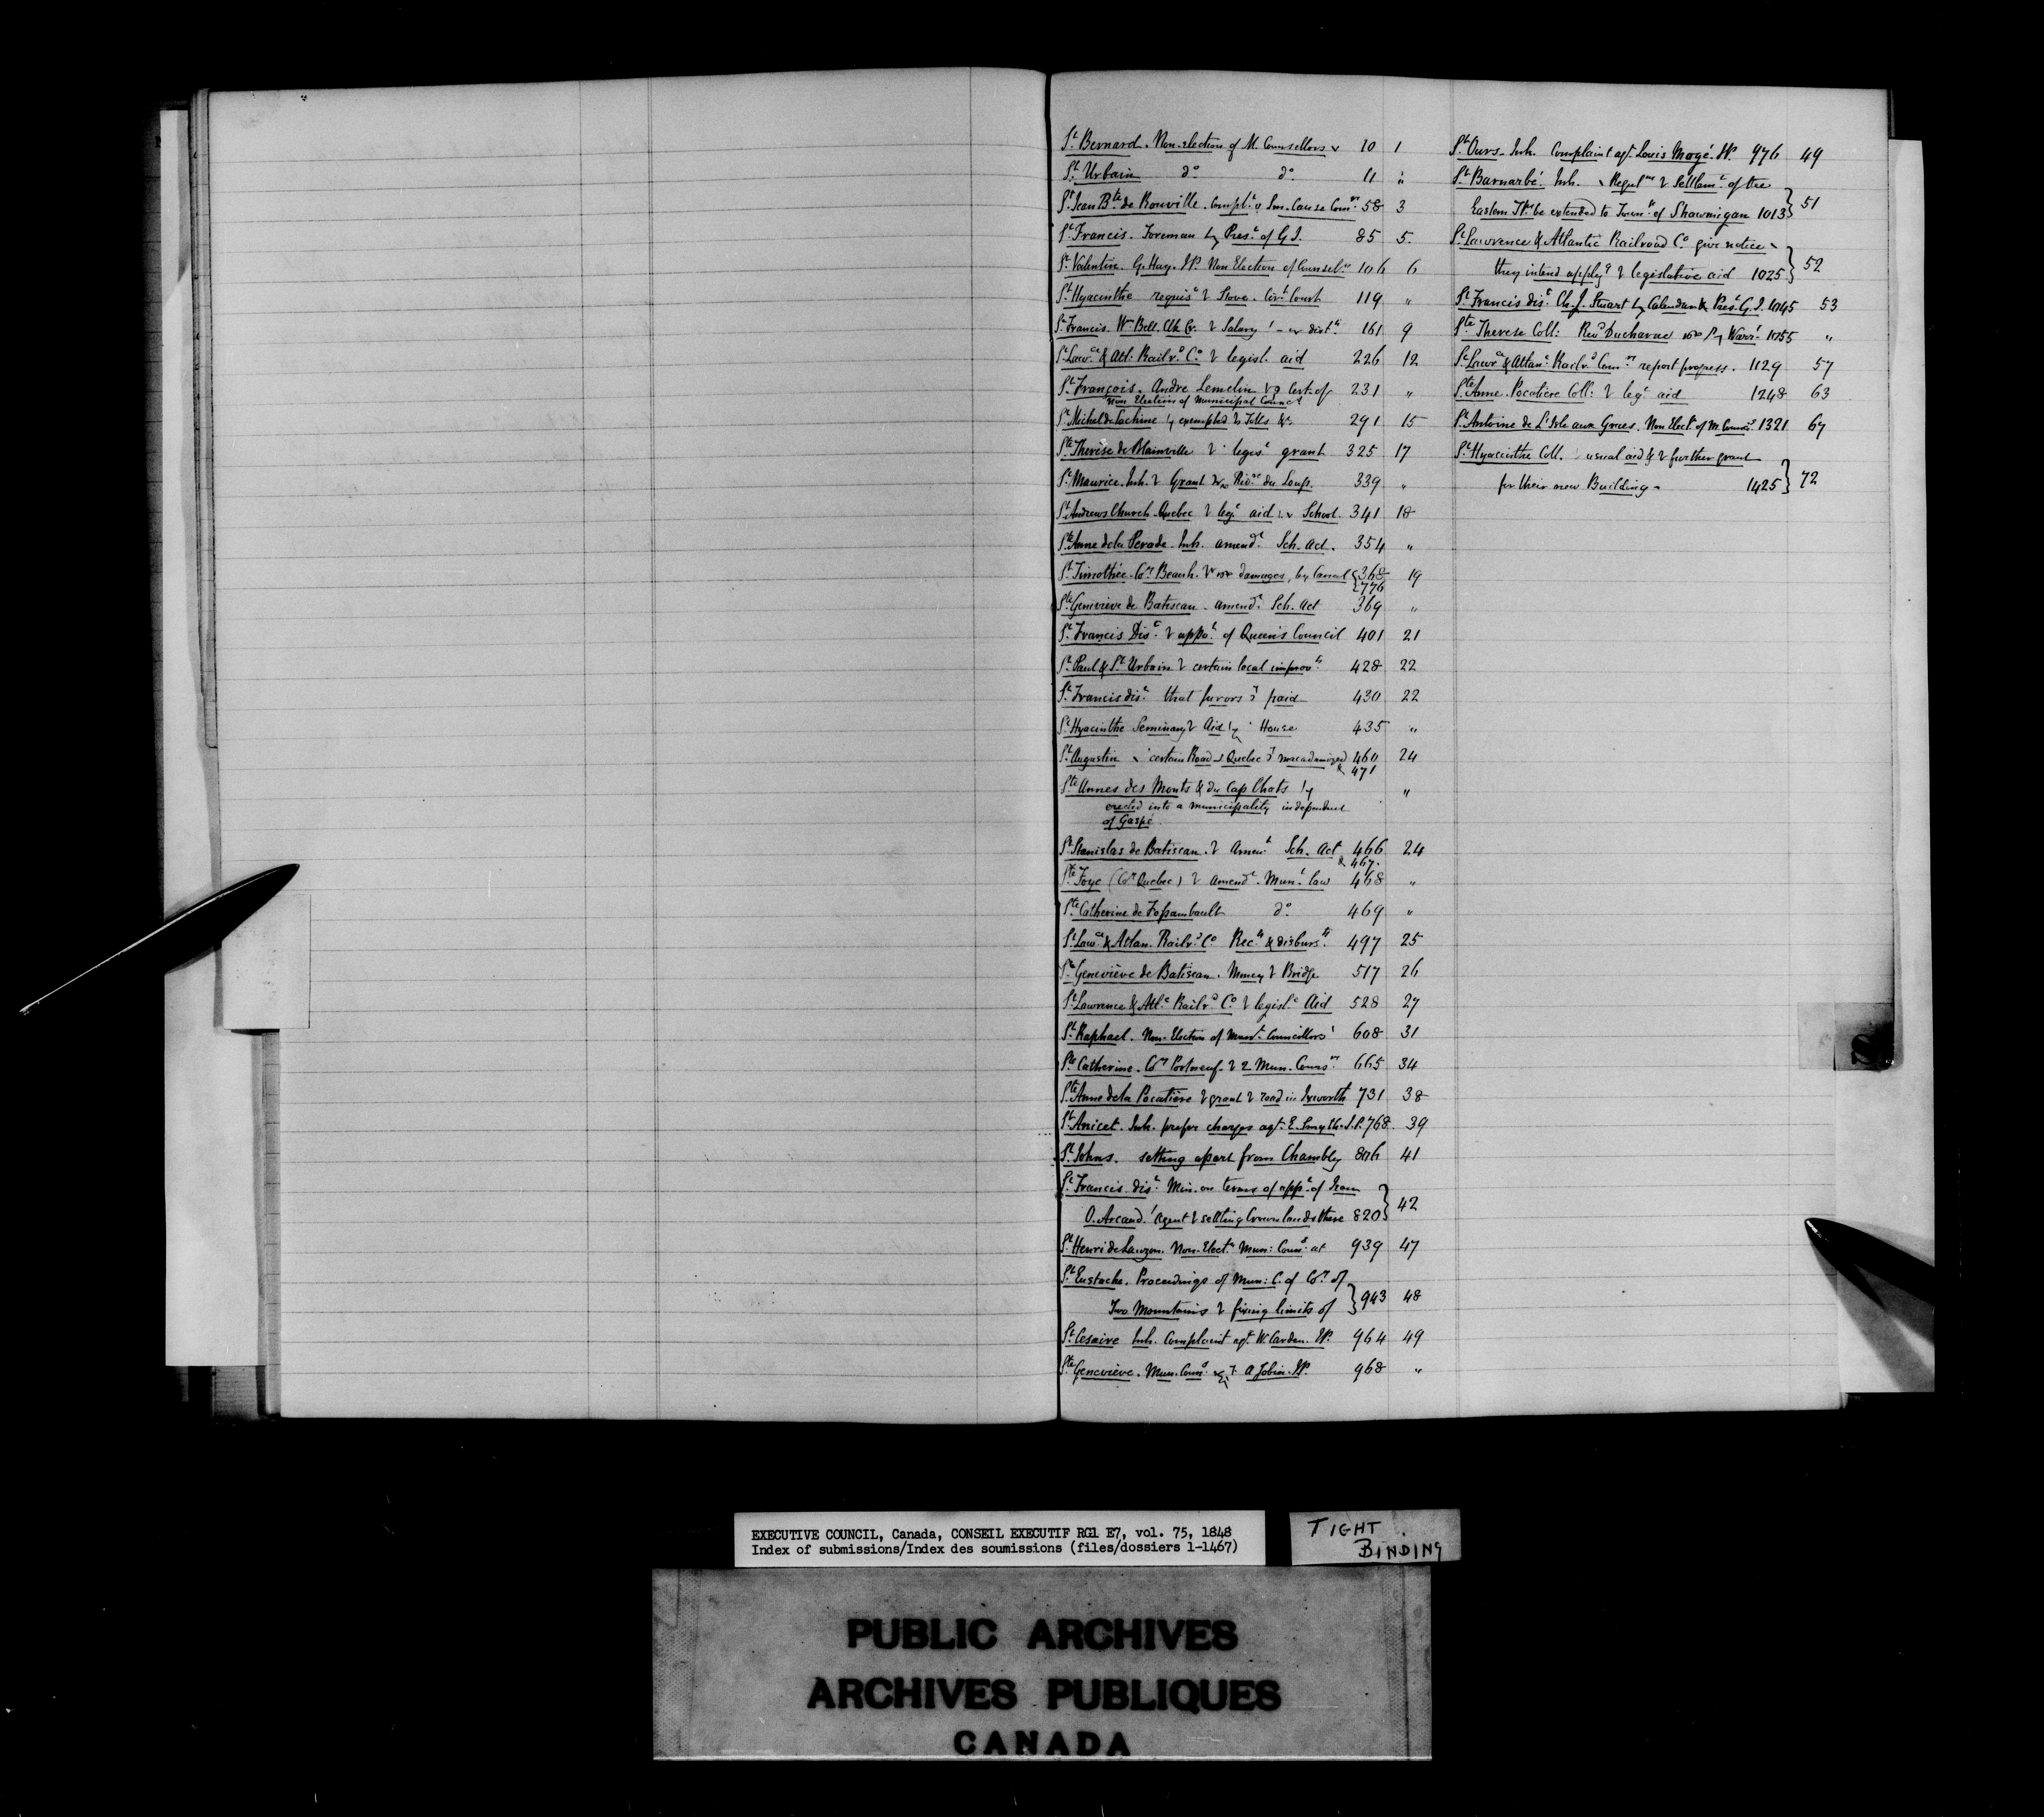 St Bernard. Non-election of M. Counsellors 10 1
St Urbain do do 11 "
St Jean Bte de Rouville. Complt Sm. Cause Comrs 58 3
St Francis. Foreman Prest of G.J. 85 5.
St Valentin. G. Hay. JP. Non Election of Counselrs 106 6
St Hyacinthe requist Stove. Cirt Court 119 "
St Francis. Wm Bell. Clk Salary distt 161 9
St Lawce & Atl. Railrd Co legisl. aid 226 12
St François. Andre Lemelin Cert. of 231 "
Non Election of Municipal Council
St Michel de Lachine exempted Tolls &c. 291 15
Ste Therese de Blainville legist grant 325 17
St Maurice. Inh. Grant Rivre du Loup. 339 "
St Andrews Church Quebec legt aid School 341 18
Ste Anne de la Perade. Inh. amendt Sch. Act. 354 "
St Timothée. Coy Beauh. damages, by Canal {368 19
{776
Ste Geneviève de Batiscan. amendt Sch. Act 369 "
St Francis Dist appot of Queen's Council 401 21
St Paul & St Urbain certain local improvts 428 22
St Francis dist that jurors paid 430 22
St Hyacinthe Seminary Aid House 435 "
St Augustin certain Road Quebec macadamized 460 24
& 471
Ste Annes des Monts & du Cap Chats "
erected into a municipality independent
of Gaspé.
St Stanislas de Batiscan. Amendt Sch. Act 466 24
& 467.
Ste Foye (Coy Quebec) amendt Munl law 468 "
Ste Catherine de Fossambault do 469 "
St Lawce & Atlan. Railrd Co Rects & disbursts 497 25
Ste Geneviève de Batiscan. Money Bridge 517 26
St Lawrence & Atlc Railrd Co legisle Aid 528 27
St Raphael. Non-Election of Munl Councillors 608 31
Ste Catherine. Coy Portneuf. 2 Mun. Counrs 665 34
Ste Anne de la Pocatière grant road in Ixworth 731 38
St Anicet. Inh. prefer charges agt E. Smyth J.P. 768. 39
St Johns. setting apart from Chambly 806 41
St Francis dist Min. on terms of appt of Jean
O. Arcand. Agent settling Crown lands there 820} 42
St Henri de Lauzon. Non-Electn Mun: Couns at 939 47
St Eustache. Proceedings of Mun: C. of Coy of
Two Mountains fixing limits of } 943 48
St Cesaire Inh. Complaint agt W. Carden. JP. 964 49
Ste Geneviève. Mun. Couns A Jobin. JP. 968 "
St Ours. Inh. Complaint agt Louis Mogé. JP. 976 49
St Barnarbé. Inh. Regulns Settlemt of the
Eastern Tps be extended to Towns of Shawinigan 1013} 51
St Lawrence & Atlantic Railroad Co give notice
they intend applyg legislative aid 1025} 52
St Francis dist Ch. J. Stuart Calendar & Prest G.J. 1045 53
Ste Therese Coll: Revd Ducharme Warrt 1055 "
St Lawce & Atlanc Railrd Comrs report progress. 1129 57
Ste Anne. Pocatiere Coll: legt aid 1248 63
St Antoine de L'Isle aux Grues. Non Elect. of M. Councl 1321 67
St Hyacinthe Coll. usual aid & further grant
for their new Building 1425} 72
EXECUTIVE COUNCIL, Canada, CONSEIL EXECUTIF RG1 E7, vol. 75, 1848
Index of submissions/Index des soumissions (files/dossiers 1-1467)
TIGHT
BINDING
PUBLIC ARCHIVES
ARCHIVES PUBLIQUES
CANADA